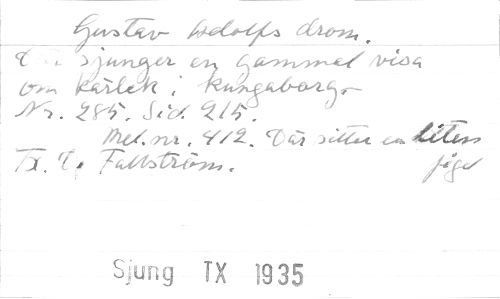 Gustav Adolfs dröm.
sjunger en gammal visa
om kärlek i kungaborg.
Nr. 285. Sid. 215.
Mel. nr. 412. Där sitter en liten
Tx. D. Fallström. fågel
Sjung TX 1935